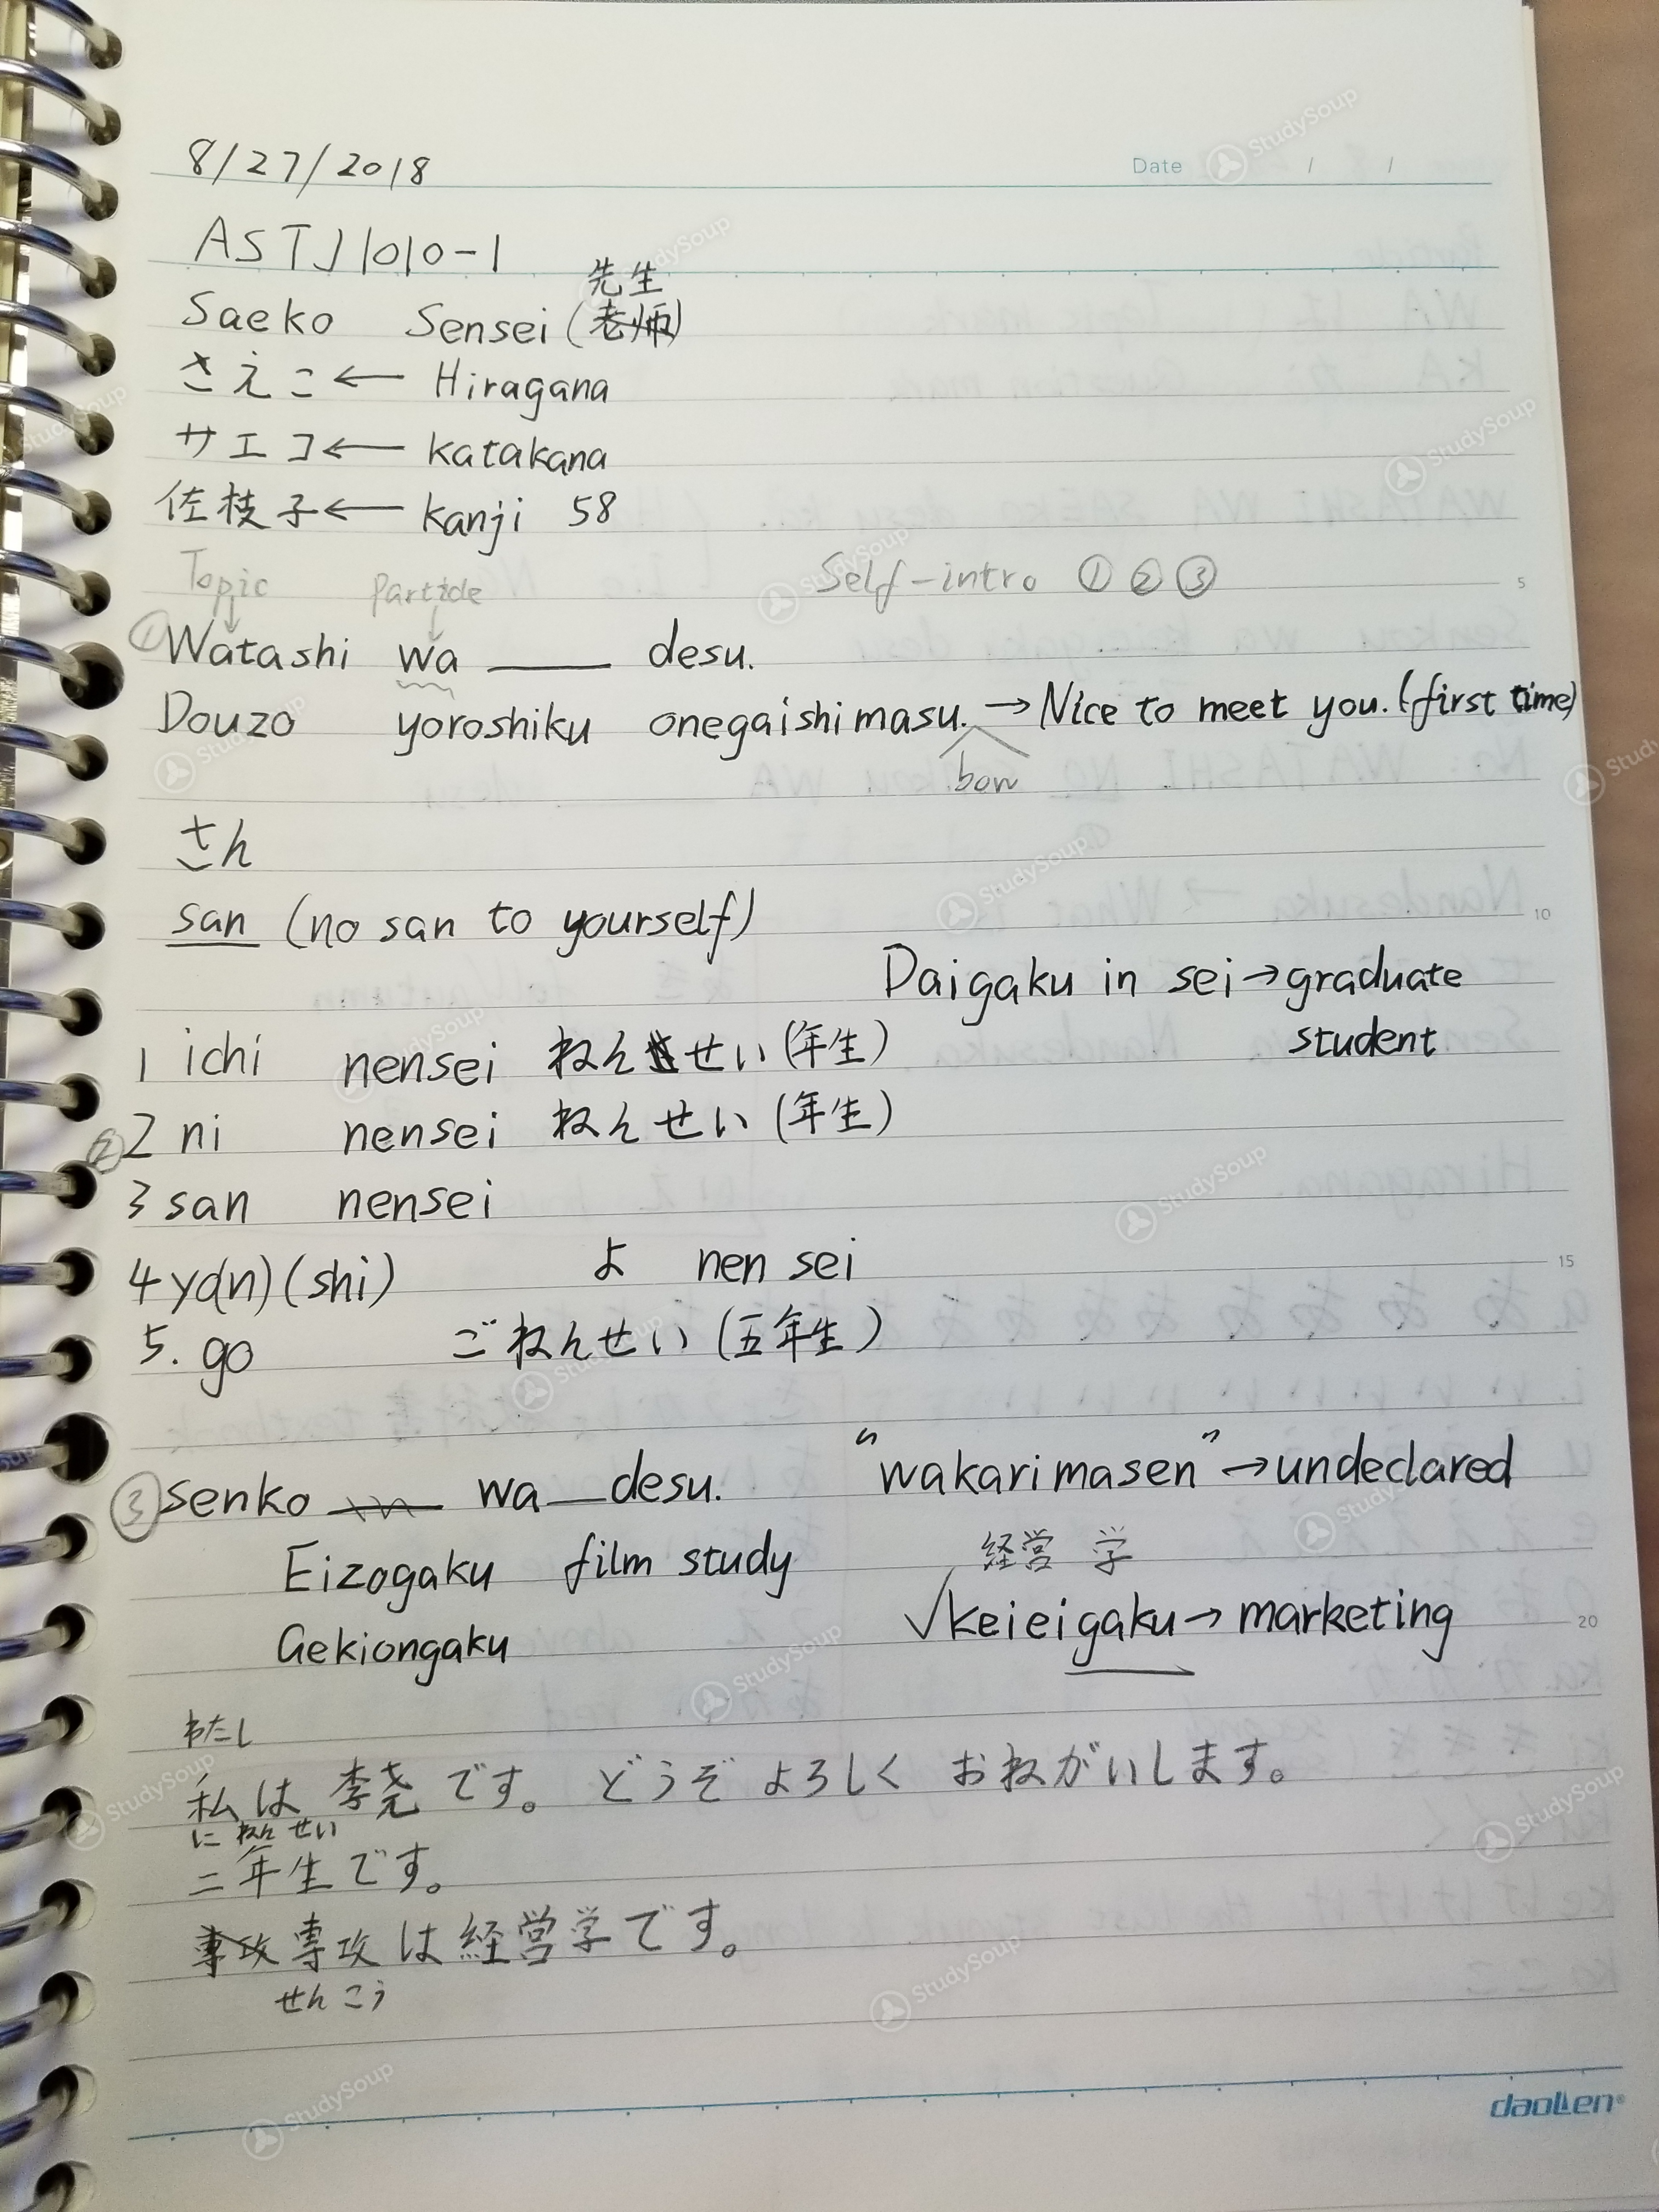 Date / /
8/27/2018
ASTJ1010-1
先生
Saeko Sensei (老师)
さえこ ← Hiragana
サエコ ← katakana
佐枝子 ← kanji 58
Topic Particle Self-intro ① ② ③
① Watashi wa ___ desu.
Douzo yoroshiku onegaishimasu. → Nice to meet you. (first time)
bow
さん
san (no san to yourself)
Daigaku in sei → graduate
student
1 ichi nensei ねんせい (年生)
② 2 ni nensei ねんせい (年生)
3 san nensei
4 yo(n) (shi) よ nen sei
5. go ごねんせい (五年生)
③ senko wa ___ desu. "wakarimasen" → undeclared
Eizogaku film study 経営 学
Gekiongaku √keieigaku → marketing
わたし
私は 李尧 です。 どうぞ よろしく おねがいします。
に ねん せい
二年生です。
専攻 専攻は経営学です。
せんこう
5
10
15
20
daollen
StudySoup